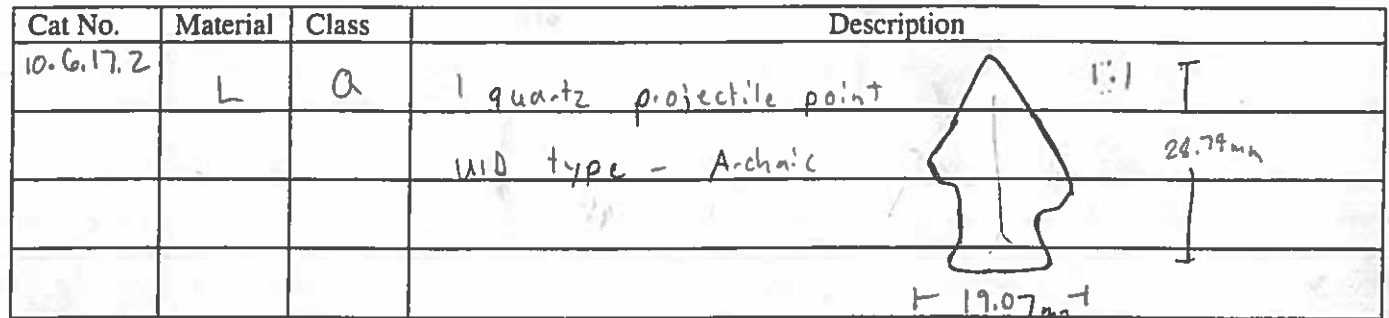 Cat No. Material Class Description
10.6.17.2 L Q 1 quartz projectile point 1:1
UID type - Archaic 28.79mm
19.07mm